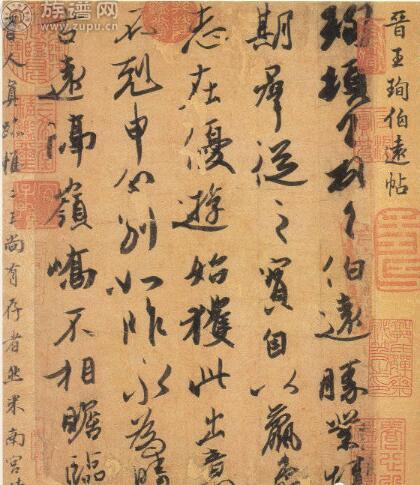 族谱网
www.zupu.cn
晉王珣伯遠帖
珣頓首頓首伯遠勝業情
期群從之寶自以羸患
志在優遊始獲此出意
不剋申分別如昨永為疇
古遠隔嶺嶠不相瞻臨
晉人真跡惟二王尚有存者然米南宮時